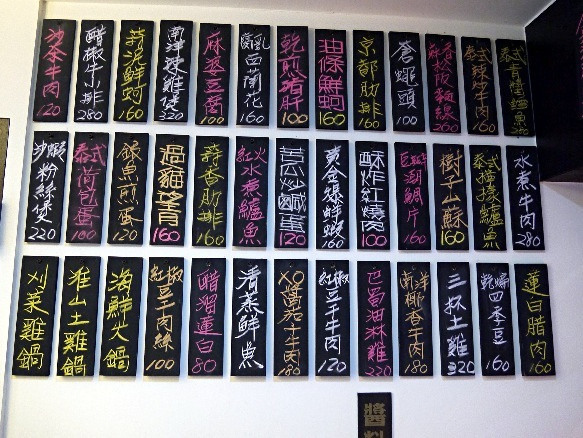 沙茶牛肉120
醋椒牛小排280
蒜泥鮮蚵160
南洋辣雞煲320
麻婆豆腐100
白蘭花160
乾煎豬肝100
油條鮮蚵160
京都肋排160
蒼蠅頭100
松阪豬260
泰式辣炒牛肉160
泰式青檸鱸魚
粉絲煲220
泰式荷包蛋100
銀魚煎蛋120
過貓160
蒜香肋排160
紅火水煮鱸魚
苦瓜炒鹹蛋120
黃金爆鮮蝦160
酥炸紅燒肉100
潮鯛片160
樹子山蘇160
泰式檸檬鱸魚
水煮牛肉280
刈菜雞鍋
淮山土雞鍋
海鮮火鍋
紅椒豆干肉絲100
醋溜蓮白80
清蒸鮮魚
XO醬茄干牛肉180
紅椒豆干牛肉120
巴蜀油淋雞220
南洋椰香子肉180
三杯土雞320
乾煸四季豆160
蓮白腊肉160
醬料